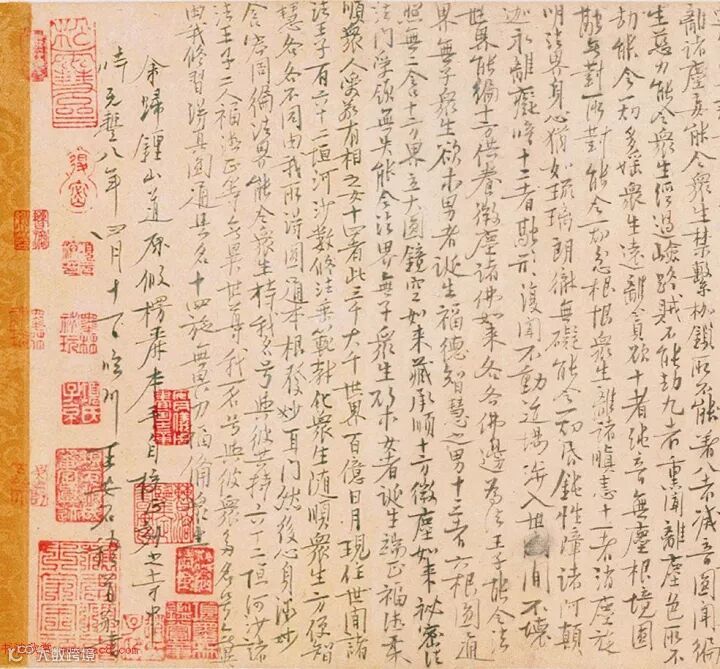 離諸塵妄能令眾生禁繫枷鎖所不能著八者滅音圓聞徧
生慈力能令眾生經過嶮路賊不能劫九者熏聞離塵色所不
劫能令一切多婬眾生遠離貪欲十者純音無塵根境圓
融無對所對能令一切忿恨眾生離諸瞋恚十一者消塵旋
明法界身心猶如琉璃朗徹無礙能令一切昏鈍性障諸阿顛
迦永離癡暗十二者融形復聞不動道場涉入世間不壞
世界能徧十方供養微塵諸佛如來各各佛邊為法王子能令法
界無子眾生欲求男者誕生福德智慧之男十三者六根圓通
照無二含十方界立大圓鏡空如來藏承順十方微塵如來秘密法
法門受領無失能令法界無子眾生欲求女者誕生端正福德柔
順眾人愛敬有相之女十四者此三千大千世界百億日月現住世間諸
法王子有六十二恒河沙數修法垂範教化眾生隨順眾生方便智
慧各各不同由我所得圓通本根發妙耳門然後心身微妙
含容周徧法界能令眾生持我名号與彼共持六十二恒河沙諸
法王子二人福德正等無異世尊我一名号與彼眾多名号無異
由我修習得真圓通是名十四施無畏力福備眾生
余歸鍾山道原假楞嚴本手自校正刻之寺中
時元豐八年四月十一日臨川王安石稽首敬書
墨林秘玩
項氏子京
大叔跨境